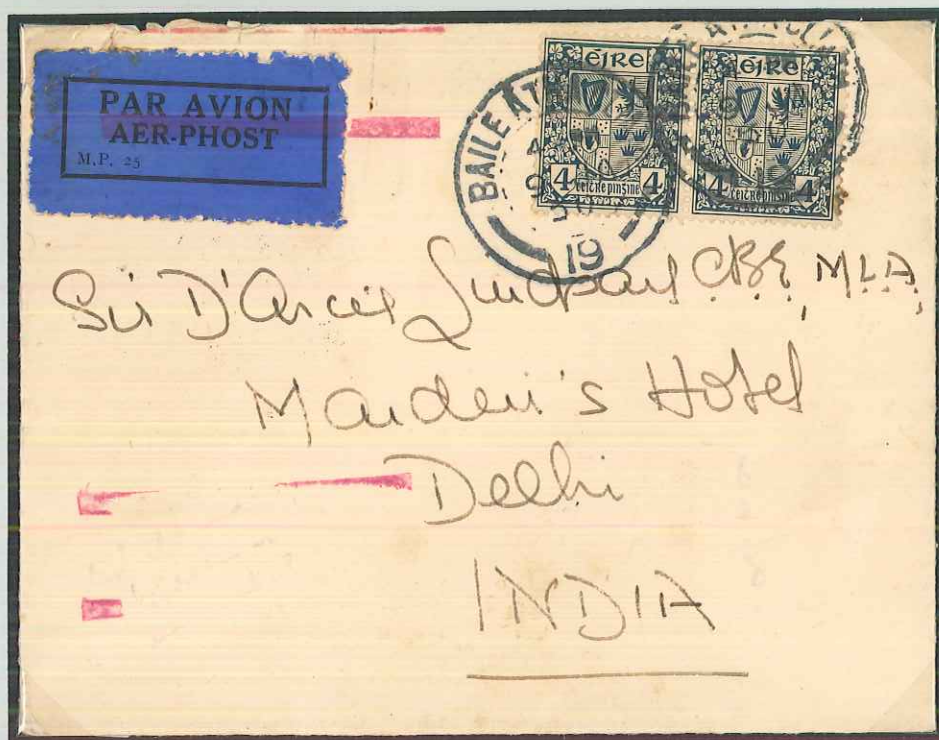 PAR AVION
AER-PHOST
M.P. 25
éire
éire
BAILE ÁT
19
4 ceitre pingine 4
4 ceitre pingine 4
Sir D'Arcy Lindsay C.B.E, M.L.A,
Maiden's Hotel
Delhi
INDIA